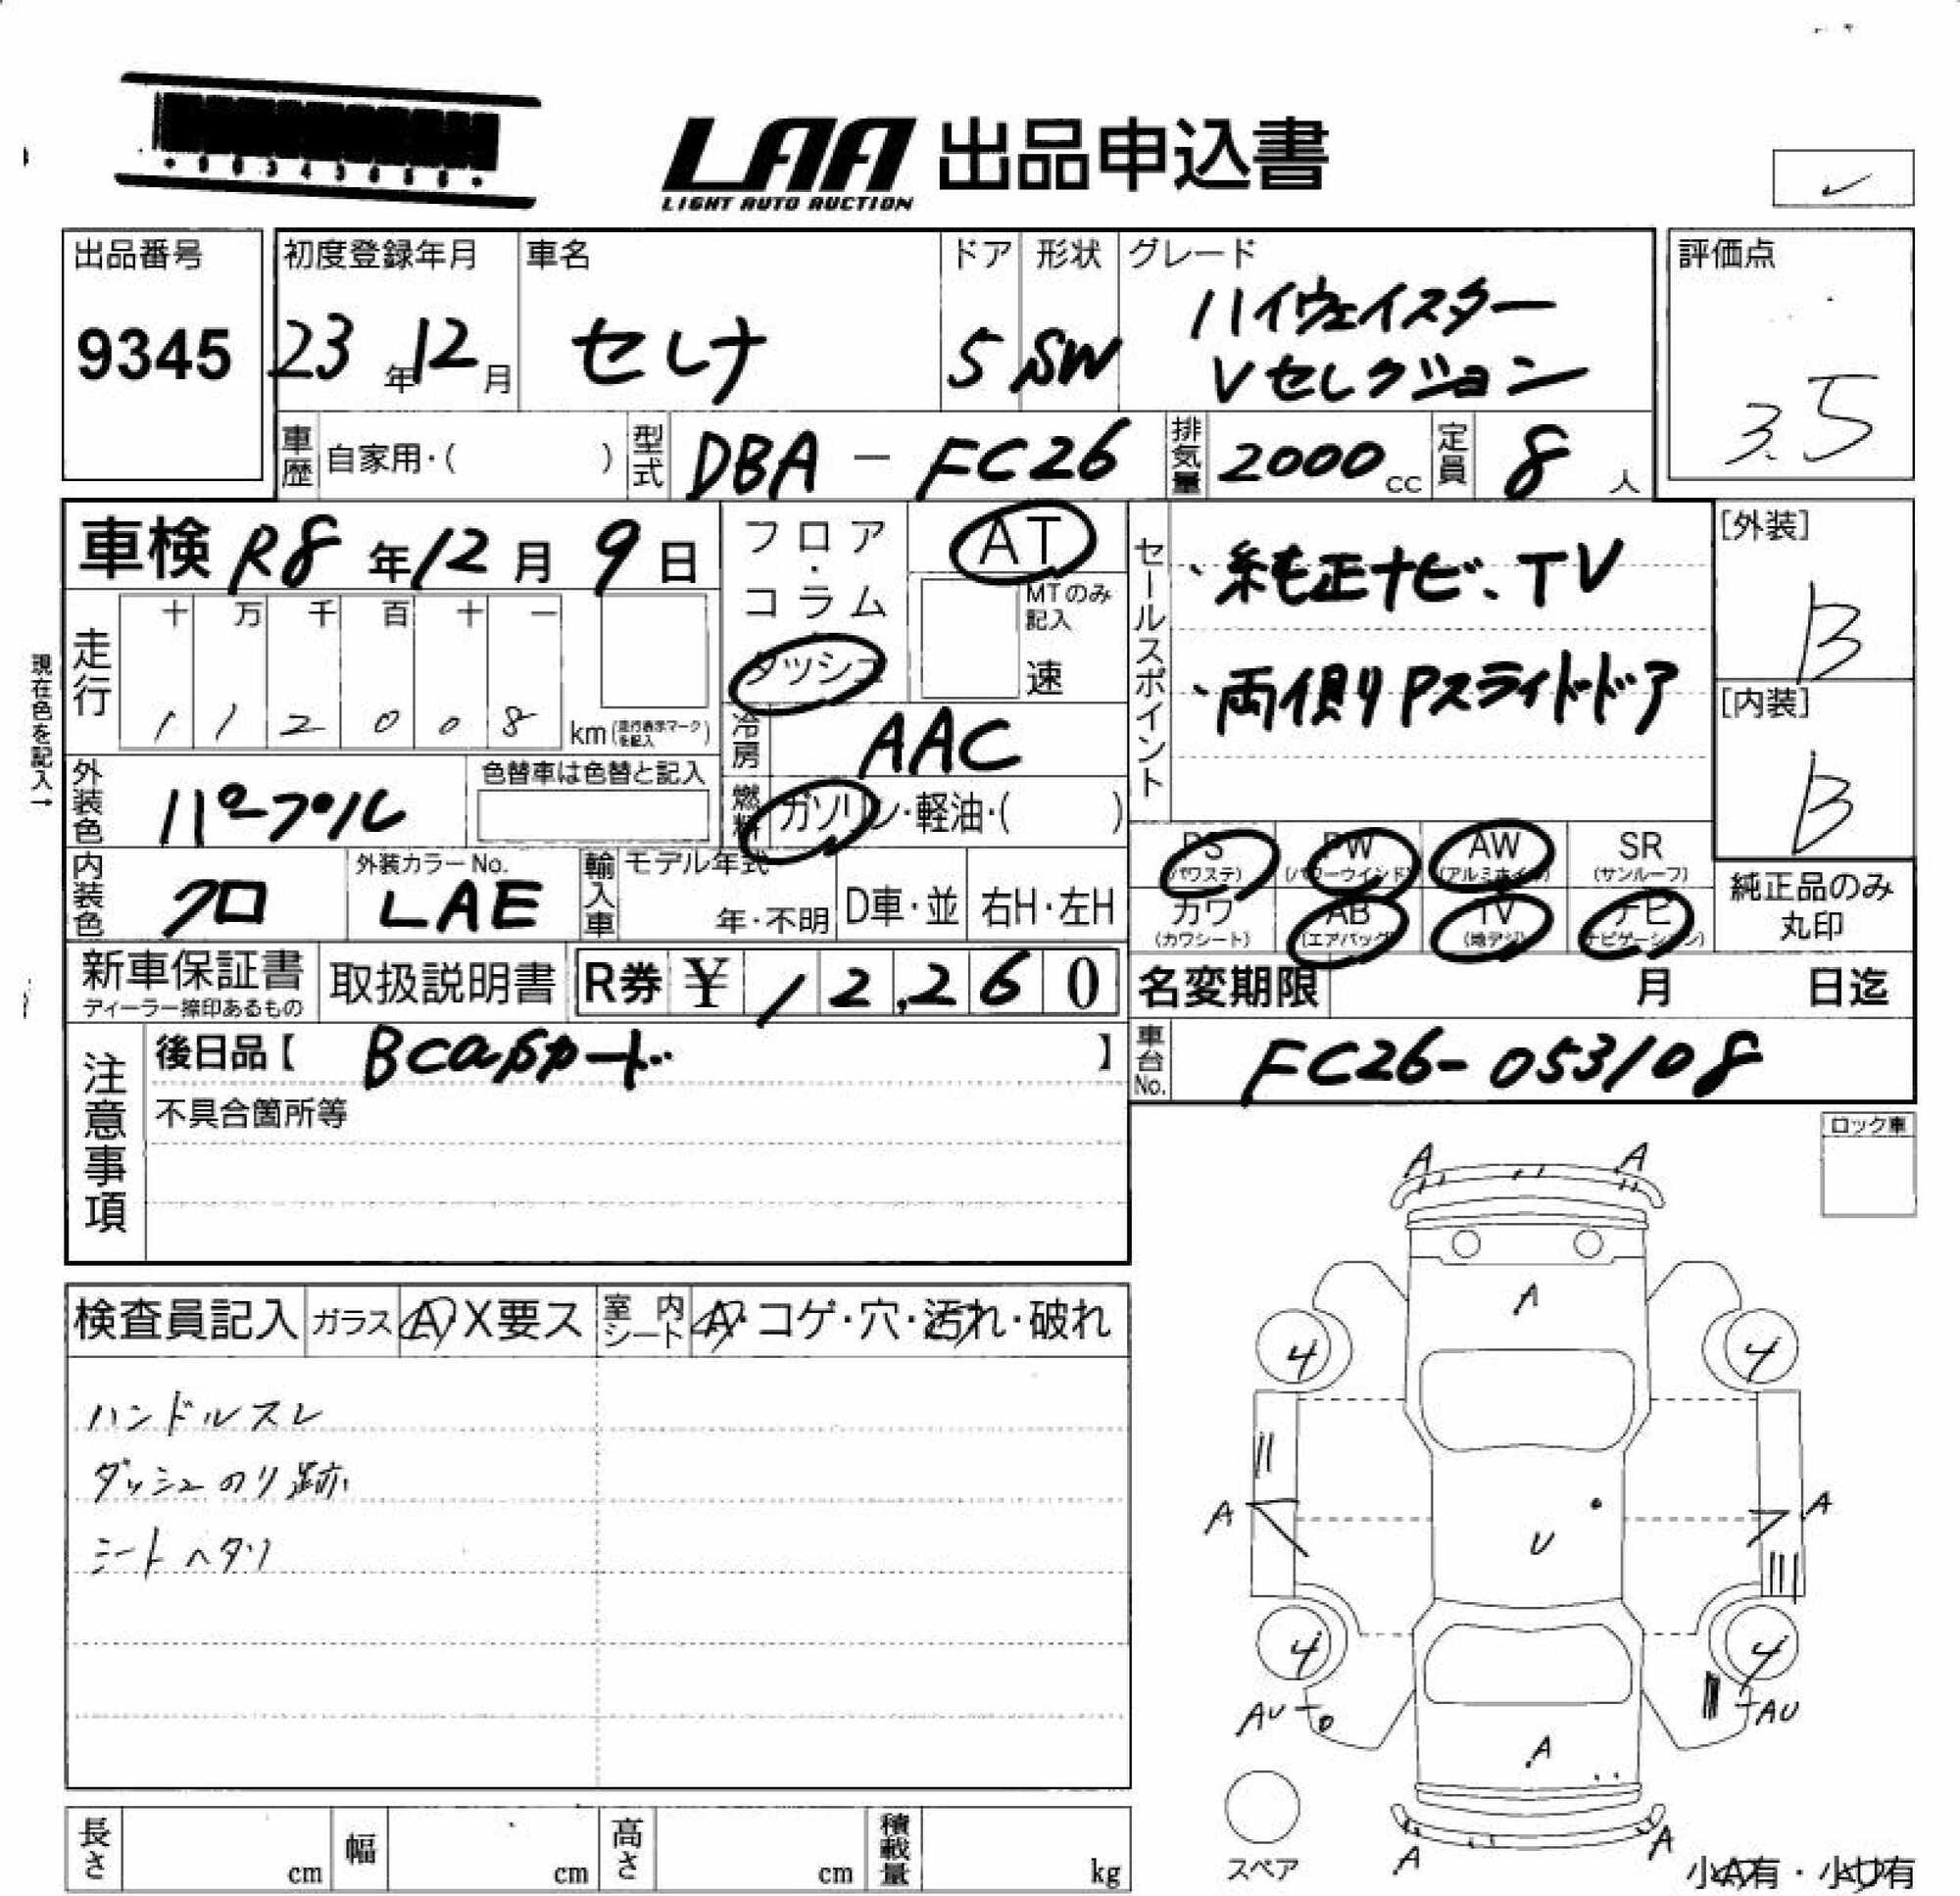 LAA 出品申込書
LIGHT AUTO AUCTION
出品番号
9345
初度登録年月
23年12月
車名
セレナ
ドア
5
形状
SW
グレード
ハイウェイスター
Vセレクション
評価点
3.5
車歴 自家用・( )
型式 DBA - FC26
排気量 2000cc
定員 8人
車検 R8年12月9日
フロア・コラム
ダッシュ
AT
MTのみ記入
速
セールスポイント
、純正ナビ、TV
、両側Pスライドドア
[外装]
B
[内装]
B
現在色を記入→
走行
十 万 千 百 十 一
1 1 2 0 0 8
km(走行表示マークを記入)
冷房 AAC
外装色 パープル
色替車は色替と記入
燃料 ガソリン・軽油・( )
PS (パワステ)
PW (パワーウインド)
AW (アルミホイル)
SR (サンルーフ)
カワ (カワシート)
AB (エアバッグ)
TV (地デジ)
ナビ (ナビゲーション)
純正品のみ
丸印
内装色 クロ
外装カラーNo.
LAE
輸入車
モデル年式
年・不明
D車・並
右H・左H
新車保証書
ディーラー捺印あるもの
取扱説明書
R券 ¥ 12,260
名変期限 月 日迄
注意事項
後日品【 Bcasカード 】
不具合箇所等
車台No. FC26-053108
ロック車
検査員記入
ガラス A X要ス
室内シート A・コゲ・穴・汚れ・破れ
ハンドルスレ
ダッシュのり跡
シートヘタリ
A A
A
4 4
A A
U
4 4
AU AU
A
A A
スペア
小A有・小U有
長さ cm
幅 cm
高さ cm
積載量 kg